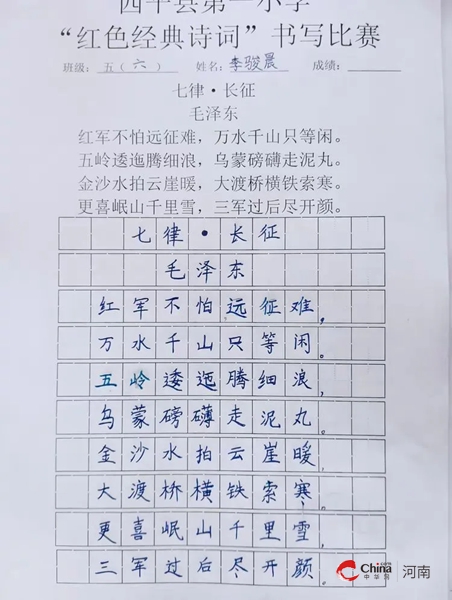 西平县第一小学
“红色经典诗词”书写比赛
班级：五（六） 姓名：李骏晨 成绩：
七律·长征
毛泽东
红军不怕远征难，万水千山只等闲。
五岭逶迤腾细浪，乌蒙磅礴走泥丸。
金沙水拍云崖暖，大渡桥横铁索寒。
更喜岷山千里雪，三军过后尽开颜。
七律·长征
毛泽东
红军不怕远征难，
万水千山只等闲。
五岭逶迤腾细浪，
乌蒙磅礴走泥丸。
金沙水拍云崖暖，
大渡桥横铁索寒。
更喜岷山千里雪，
三军过后尽开颜。
China.com
中华网 河南